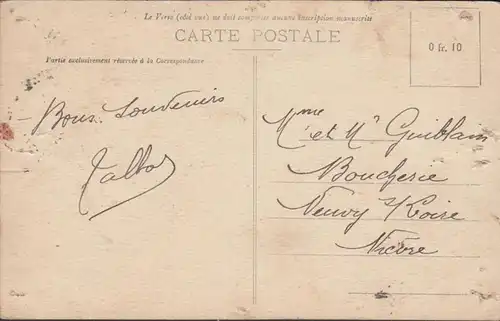 Le Verso (côté vue) ne doit comporter aucune inscription manuscrite
CARTE POSTALE
Partie exclusivement réservée à la Correspondance
0 fr. 10
Bons Souvenirs
Talbot
Mme et Mr Guiblain
Boucherie
Neuvy s/Loire
Nièvre